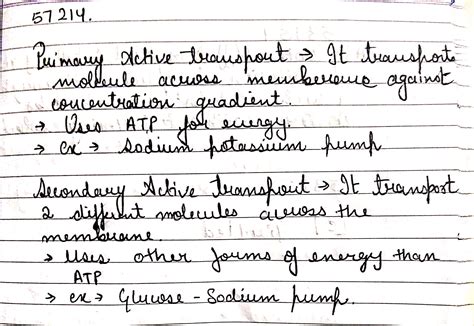 57214.
Primary Active transport → It transports
molecule across memberane against
concentration gradient.
→ Uses ATP for energy.
→ ex → Sodium potassium pump
Secondary Active Transport → It transport
2 different molecules across the
membrane.
→ Uses other forms of energy than
ATP
→ ex → Glucose - Sodium pump.